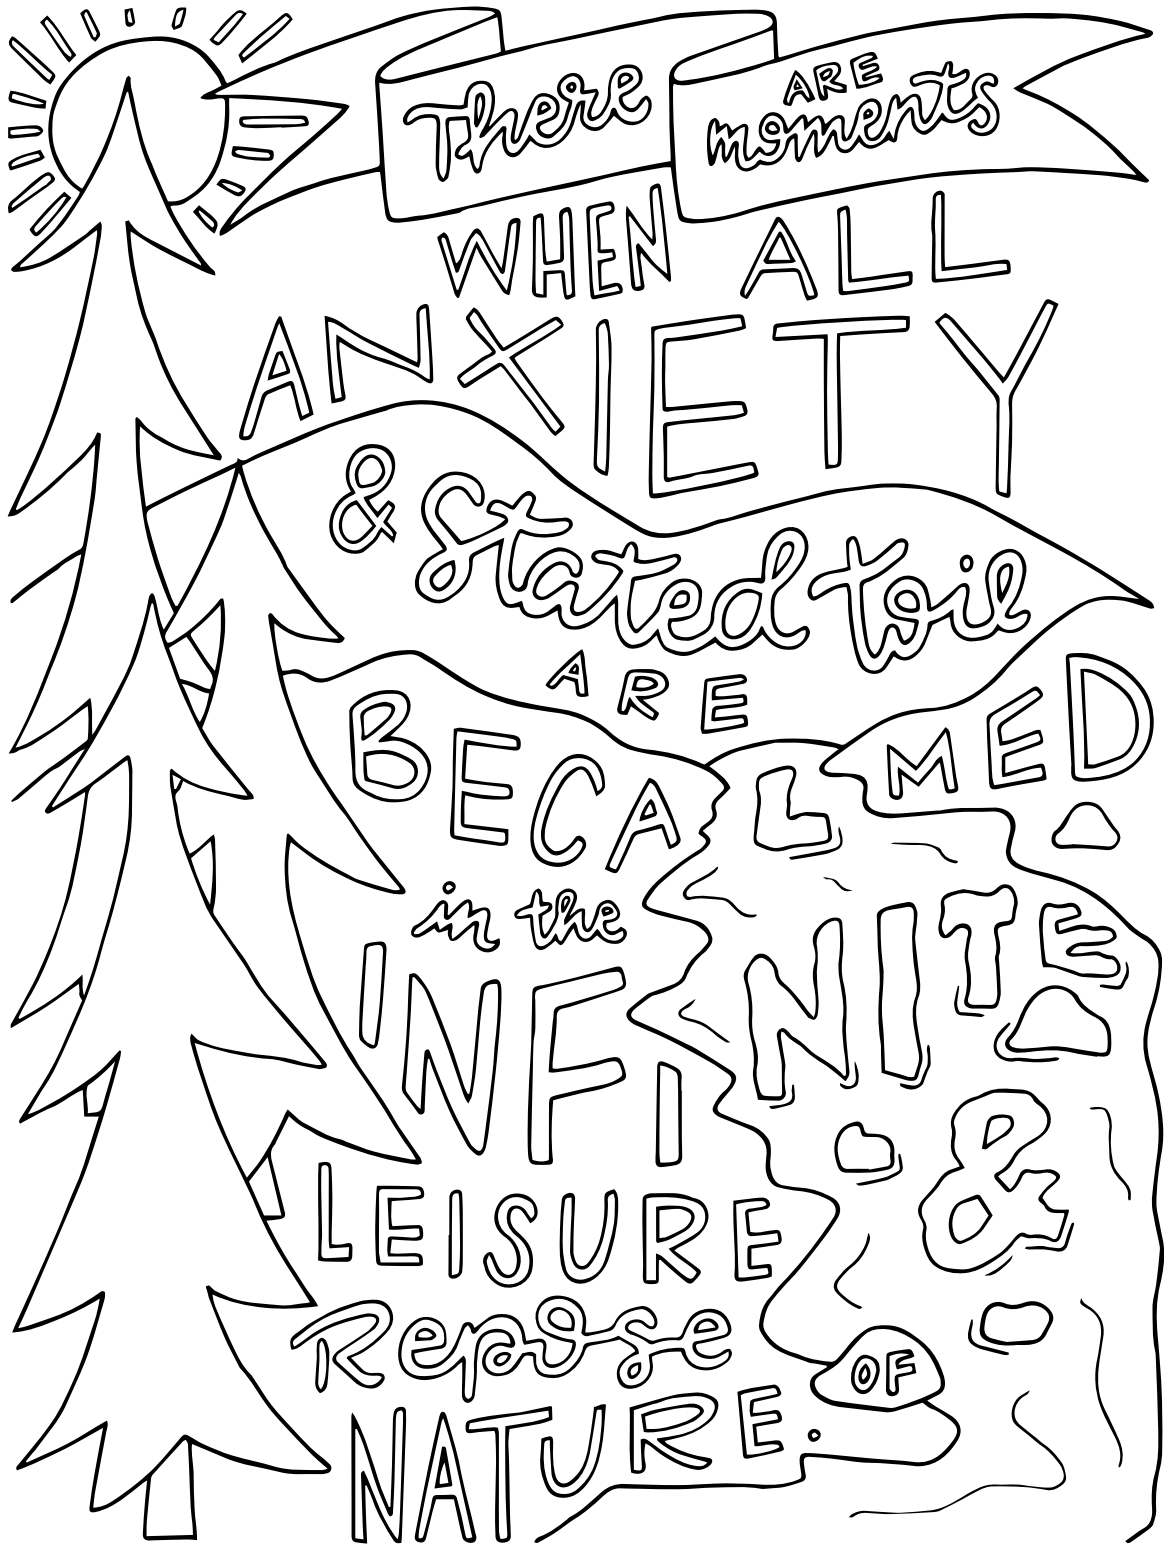 There ARE moments
WHEN ALL
ANXIETY
& Stated toil
ARE
BECALMED
in the
INFINITE
&
LEISURE
Repose OF
NATURE.